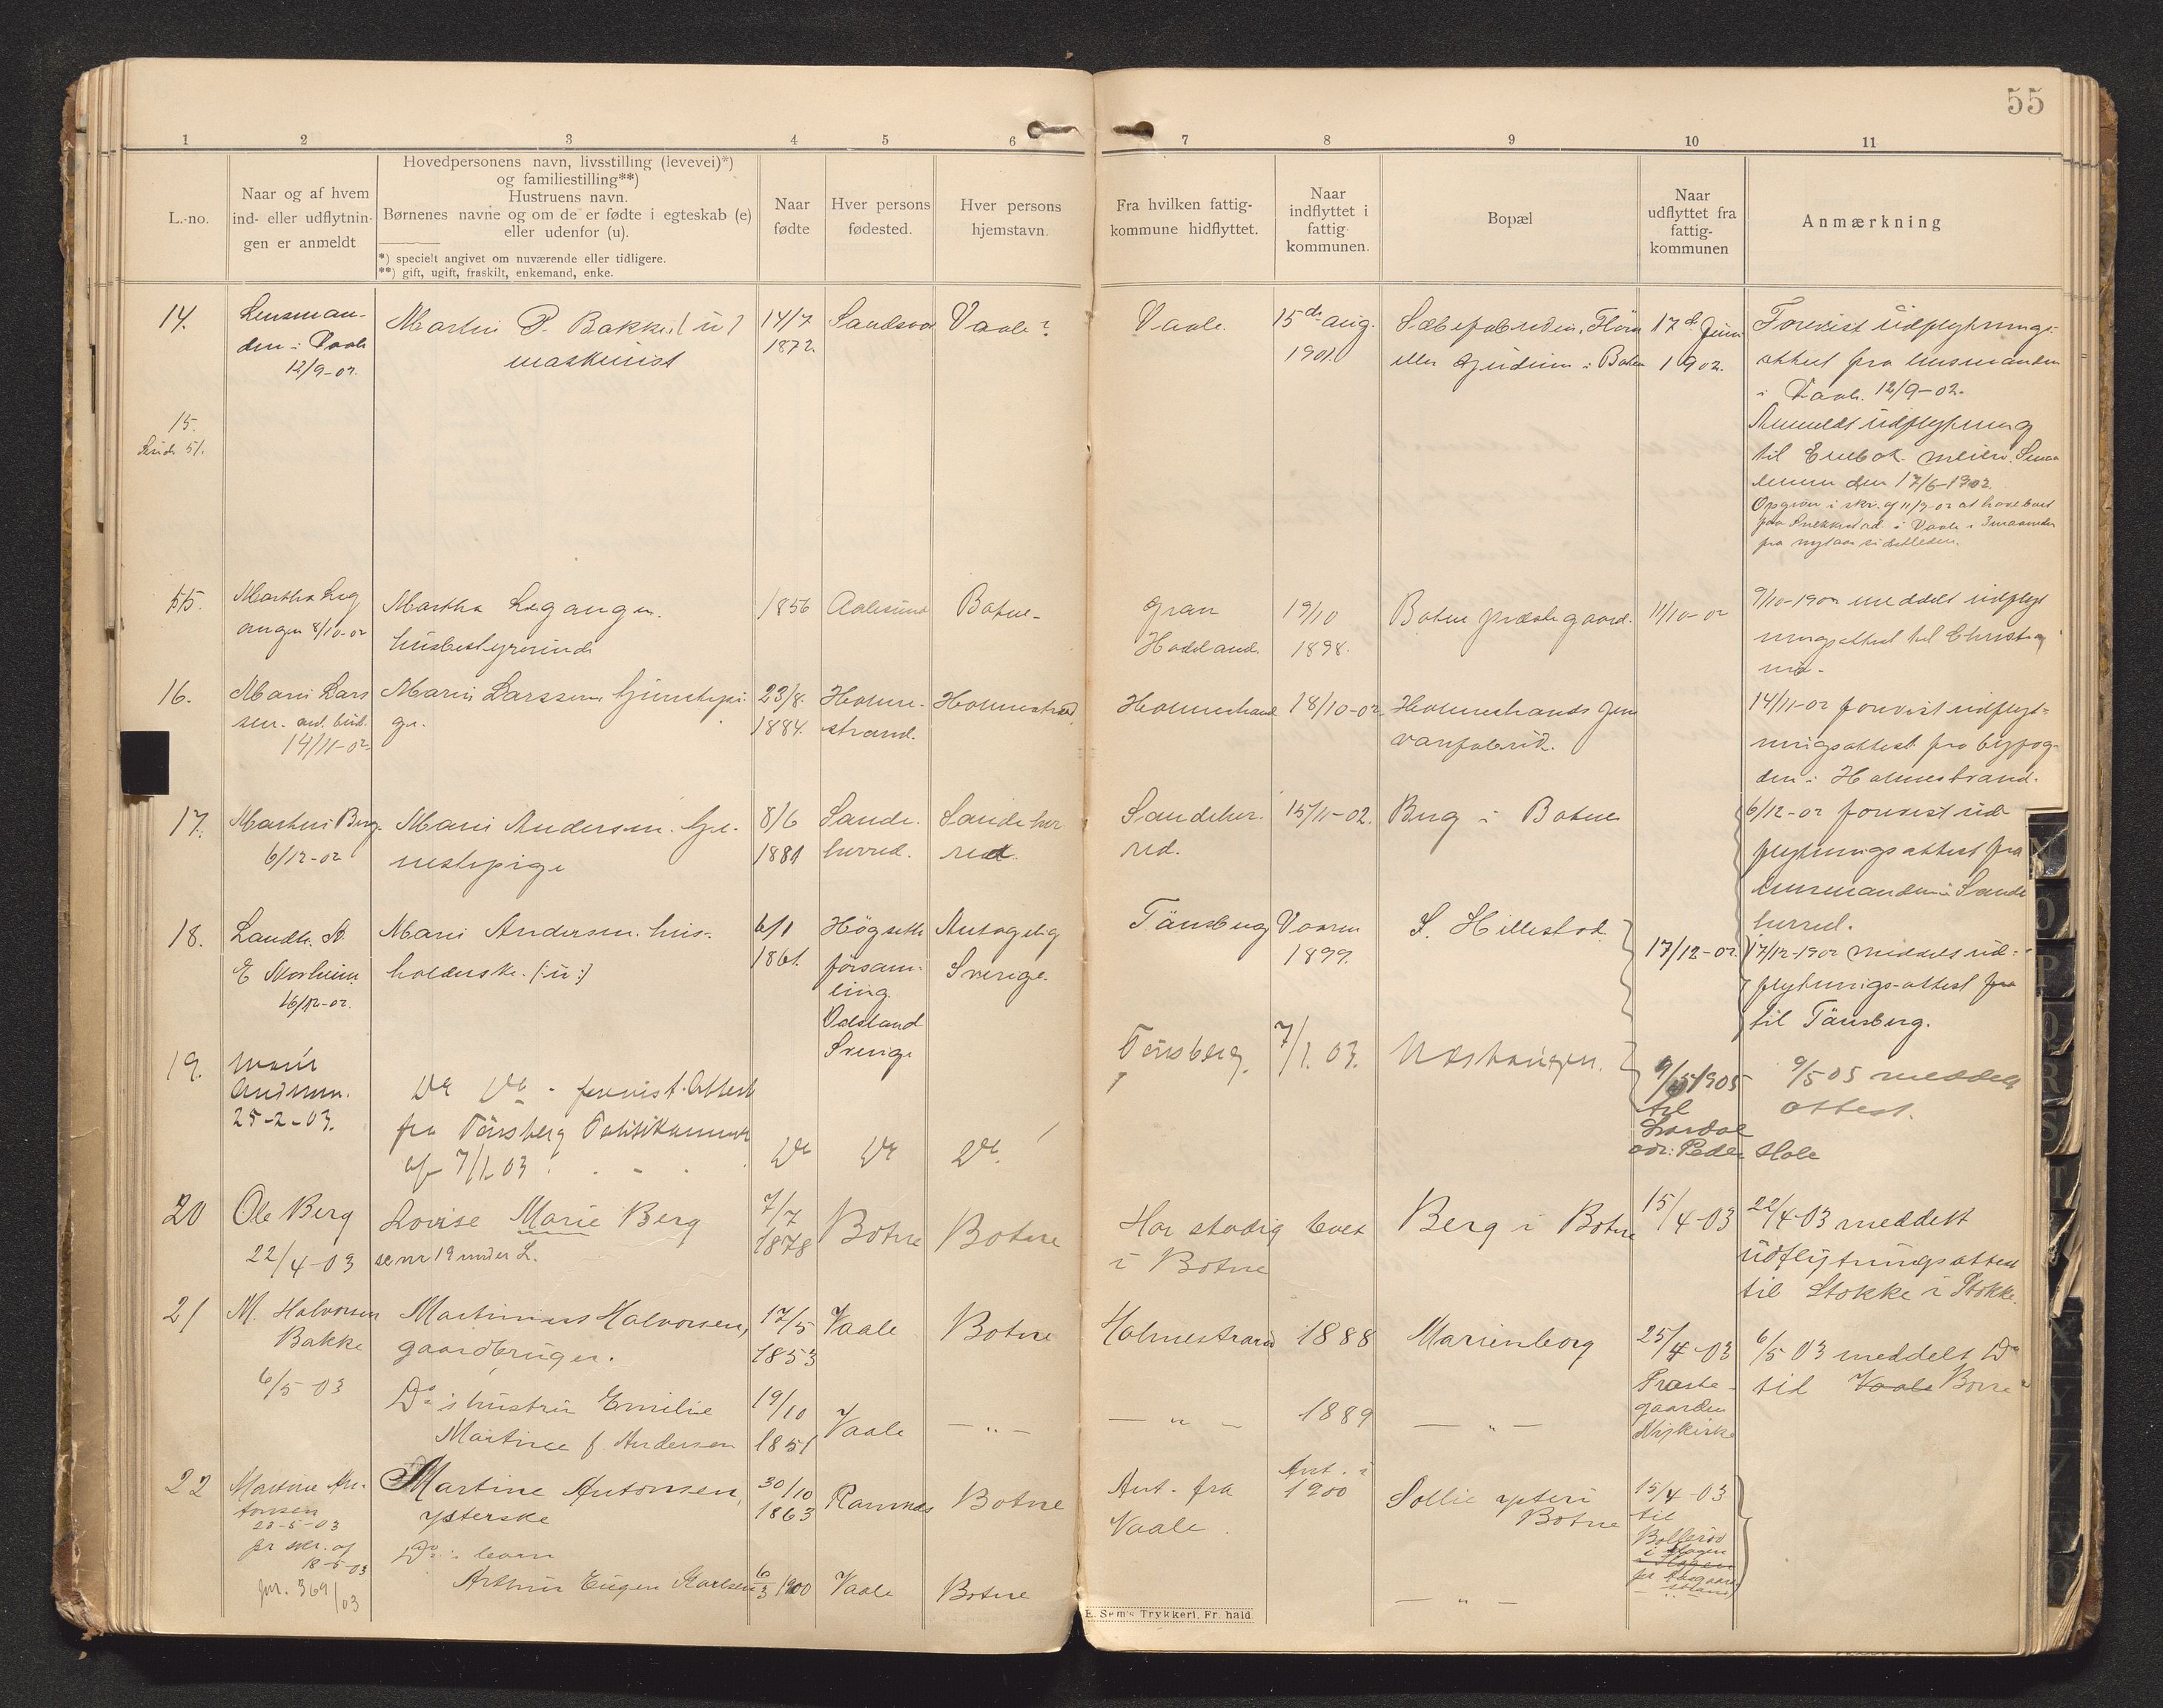 55
1 2 3 4 5 6 7 8 9 10 11
L.-no.
Naar og af hvem
ind- eller udflytnin-
gen er anmeldt
Hovedpersonens navn, livsstilling (levevei)*)
og familiestilling**)
Hustruens navn.
Børnenes navne og om de er fødte i egteskab (e)
eller udenfor (u).
*) specielt angivet om nuværende eller tidligere.
**) gift, ugift, fraskilt, enkemand, enke.
Naar
fødte
Hver persons
fødested.
Hver persons
hjemstavn.
Fra hvilken fattig-
kommune hidflyttet.
Naar
indflyttet i
fattig
kommunen.
Bopæl
Naar
udflyttet fra
fattig-
kommunen
Anmærkning
14.
Lensman-
den i Vaale
12/9-02.
Martin P. Bakke (u)
maskinist
14/7
1872.
Vaale?
Vaale.
15de aug.
1901.
i Botne
17d Juni
1902.
Forevist udflytnings-
attest fra lensmanden
i Vaale. 12/9-02.
Anmeldt udflytning
til
den 17/6-1902.
i Vaale i 3 maaneder
fra nytaar
15.
55.
Martha Leg
angen 8/10-02
Martha Legangen.
husbestyrerinde
1856
Aalesund
Botne-
Gran
Hadeland.
19/10
1898.
Botne præstegaard.
11/10-02
9/10-1902 meddelt udflyt
ningsattest til Christia
nia-
16.
Marie Lars
sen. anl. bud.
14/11-02.
Marie Larssen. tjenestepi-
ge.
23/8.
1884.
Holme-
strand.
Holmestrand
Holmestrand
18/10-02.
Holmestrands
varefabrik.
14/11-02 forevist udflyt-
ningsattest fra byfog-
den i Holmestrand.
17.
Martin Berg.
6/12-02
Marie Andersen. tje-
nestepige
8/6
1881
Sande.
herred.
Sande her
red.
Sandeher.
red.
15/11-02.
Berg i Botne
6/12-02 forevist ud
flytningsattest fra
lensmanden i Sande
herred.
18.
Landh. A.
E
16/12-02.
Marie Andersen. hus-
holderske. (:u:)
6/1
1861.
Högsette
församl-
ling.
Dalsland
Sverige
Antagelig
Sverige.
Tönsberg
Vaaren
1899.
S. Hillestad.
17/12-02.
17/12-1902 meddelt ud-
flytnings-attest fra
til Tönsberg.
19.
Marie
Andersen.
25-2-03.
Do Do - forevist Attest
fra Tönsberg Politikammer
af 7/1 03.
Do Do Do.
Tönsberg.
7/1. 03.
9/5 1905
til
Lardal
adr: Peder Hole
9/5 05 meddelt
attest.
20
Ole Berg
22/4-03
Lovise Marie Berg
se nr 19 under L.
7/7
1878
Botne
Botne
Har stadig boet
i Botne
Berg i Botne
15/4-03
22/4-03 meddelt
udflytningsattest
til Stokke i Stokke.
21
M. Halvorsen
Bakke
6/5-03
Martinius Halvorsen,
gaardbruger.
17/5
1853
Vaale
Botne
Holmestrand
1888
Marienborg
25/4-03
Præste-
gaarden
Nykirke
6/5 03 meddelt Do
til Vaale Borre
Do's hustru Emilie
Martine f. Andersen
19/10
1851
Vaale
— " —
— " —
1889
— " —
22
Martine An-
tonsen
23-5-03
pr skr. af
18-5-03
Jnr. 369/03
Martine Antonsen,
ysterske
30/10
1863
Ramnes
Botne
Ant. fra
Vaale.
Ant. i
1900
Sollie ysteri
Botne
15/4-03
til
i Slagen
Do's barn
Arthur Eugen Karlsen
6/3 1900
Vaale
Botne
— " —
E. Sem's Trykkeri, Fr. hald.